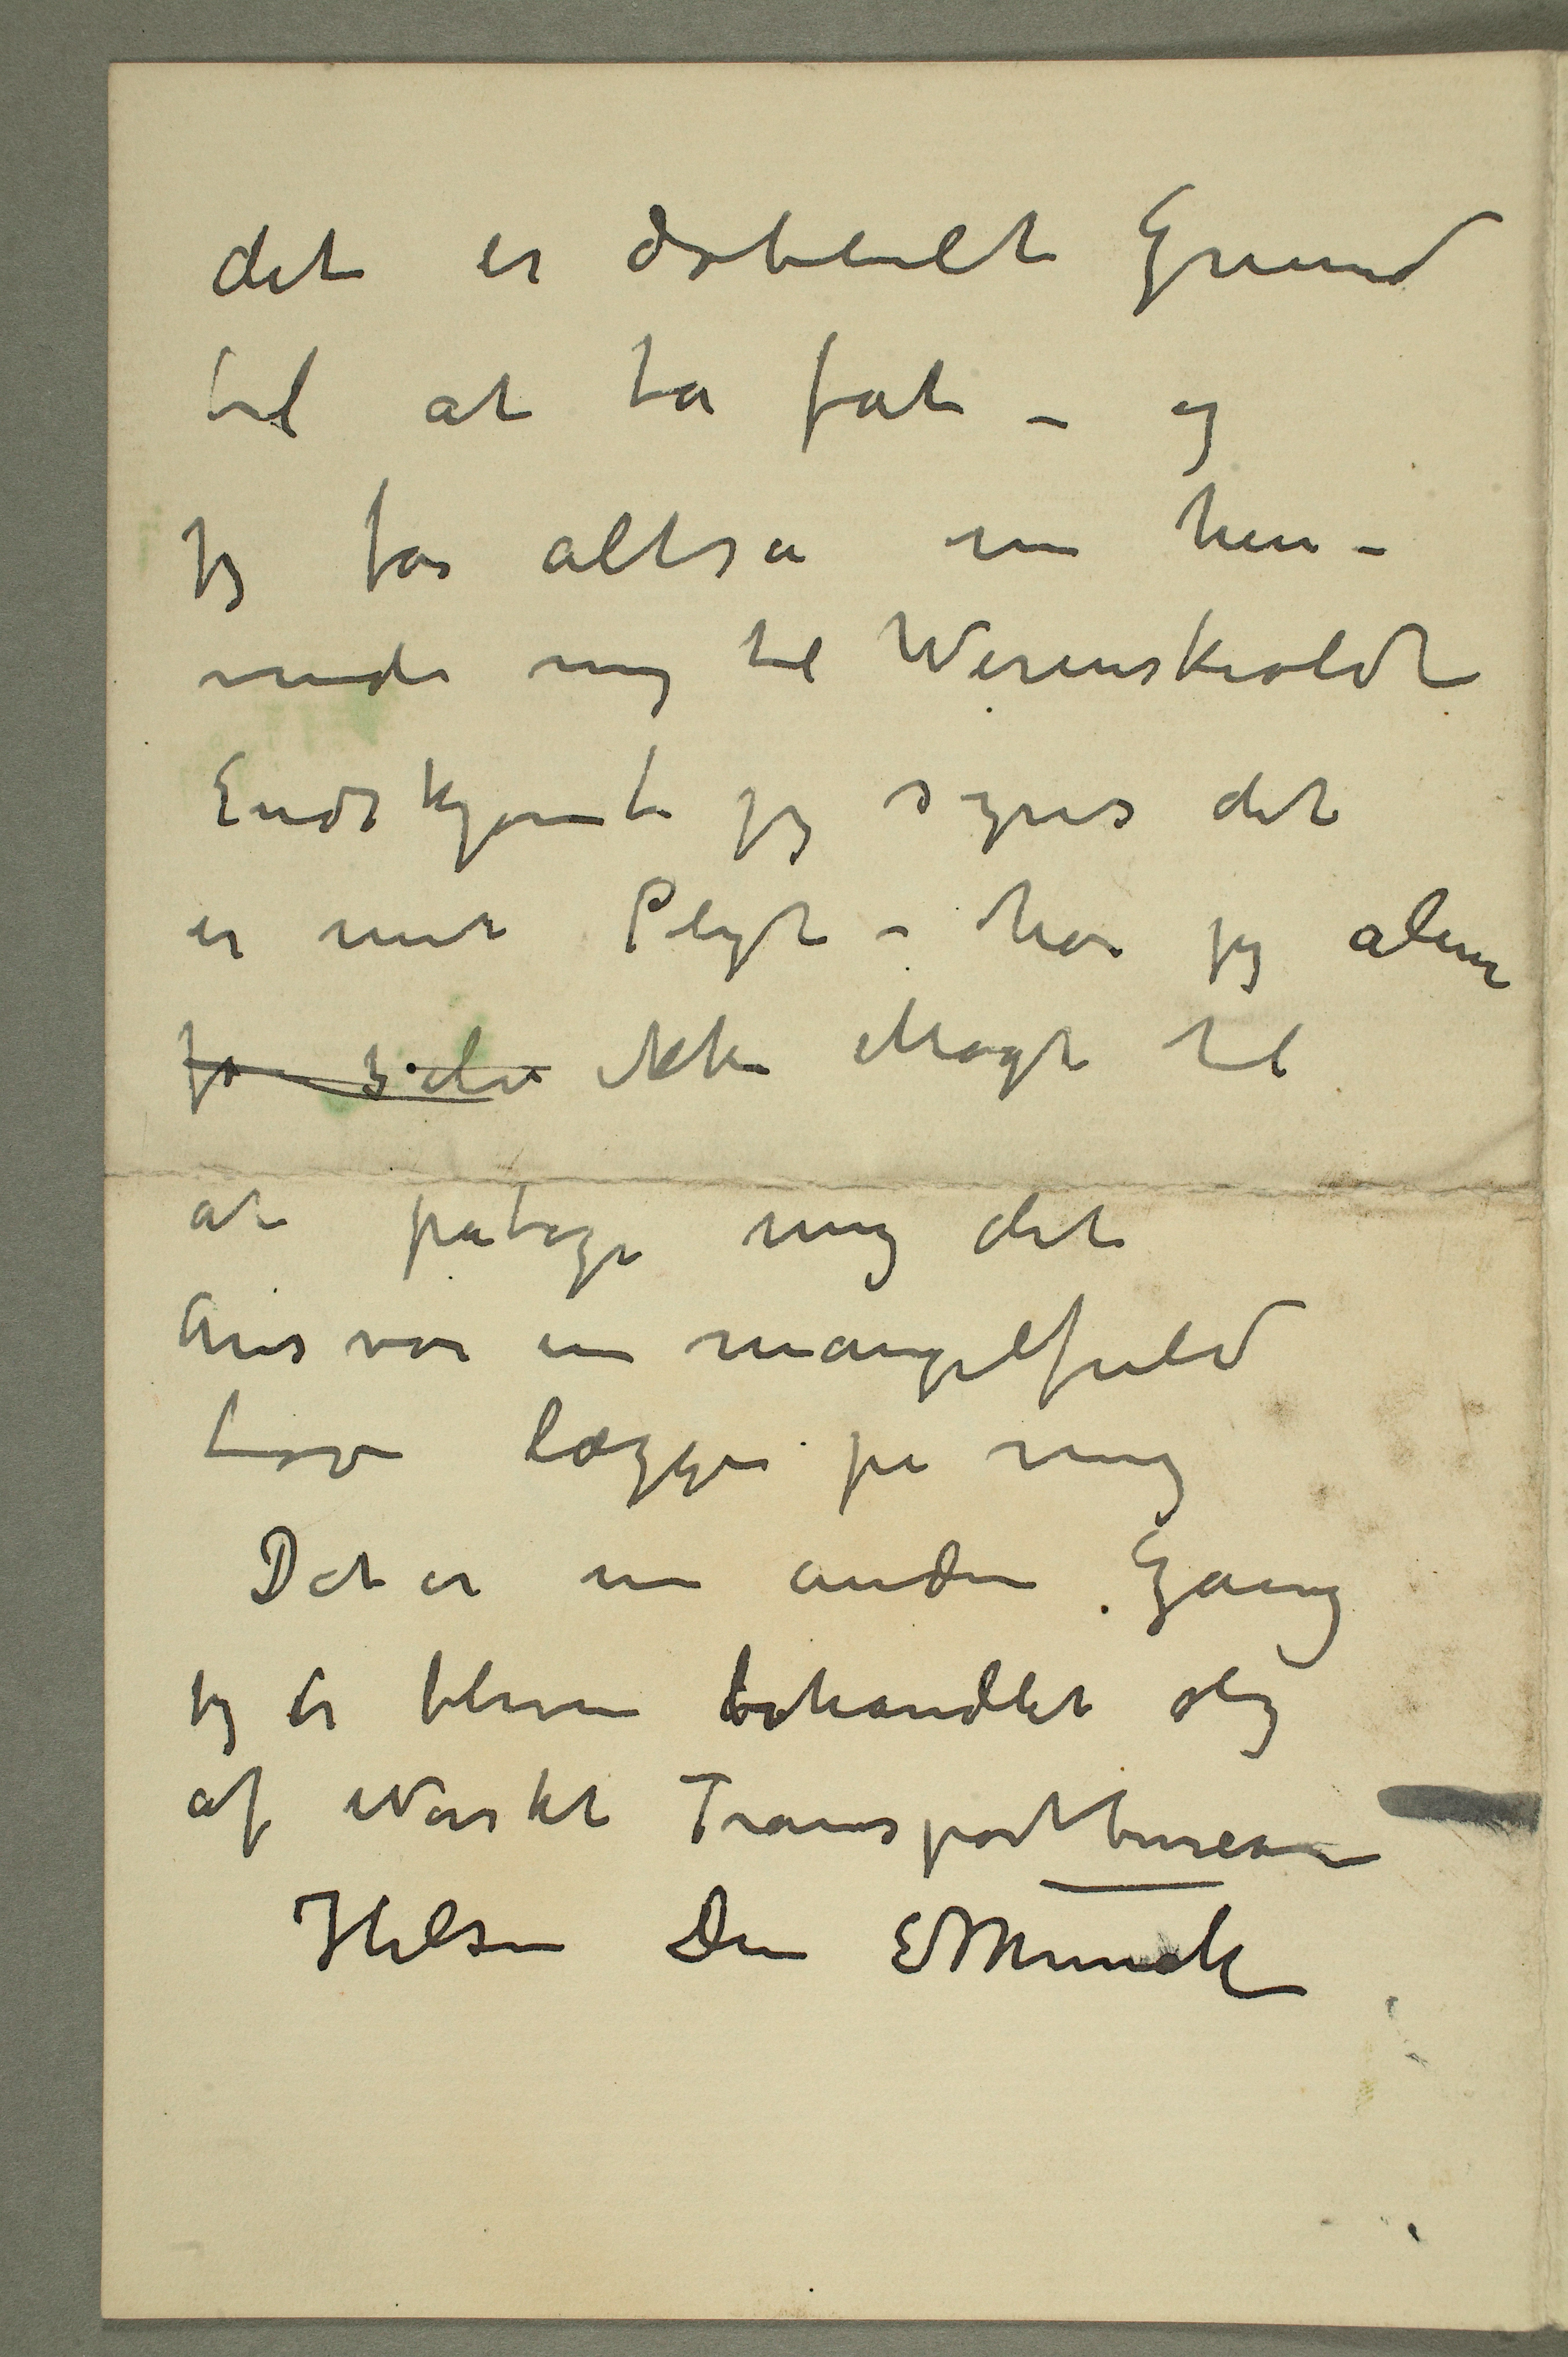 det er dobbelt Grund
til at ta fat – og
jeg får altså nu hen-
vende mig til Werenskioldt
Endskjøndt jeg synes det
er mit Pligt – har jeg alene
selv ikke Magt til
at påtage mig det
Ansvar en mangelfuld
Lov lægger på mig
Det er en anden Gang
jeg er bleven behandlet
af Norsket Transportbureau
Hilsen Din EMunch